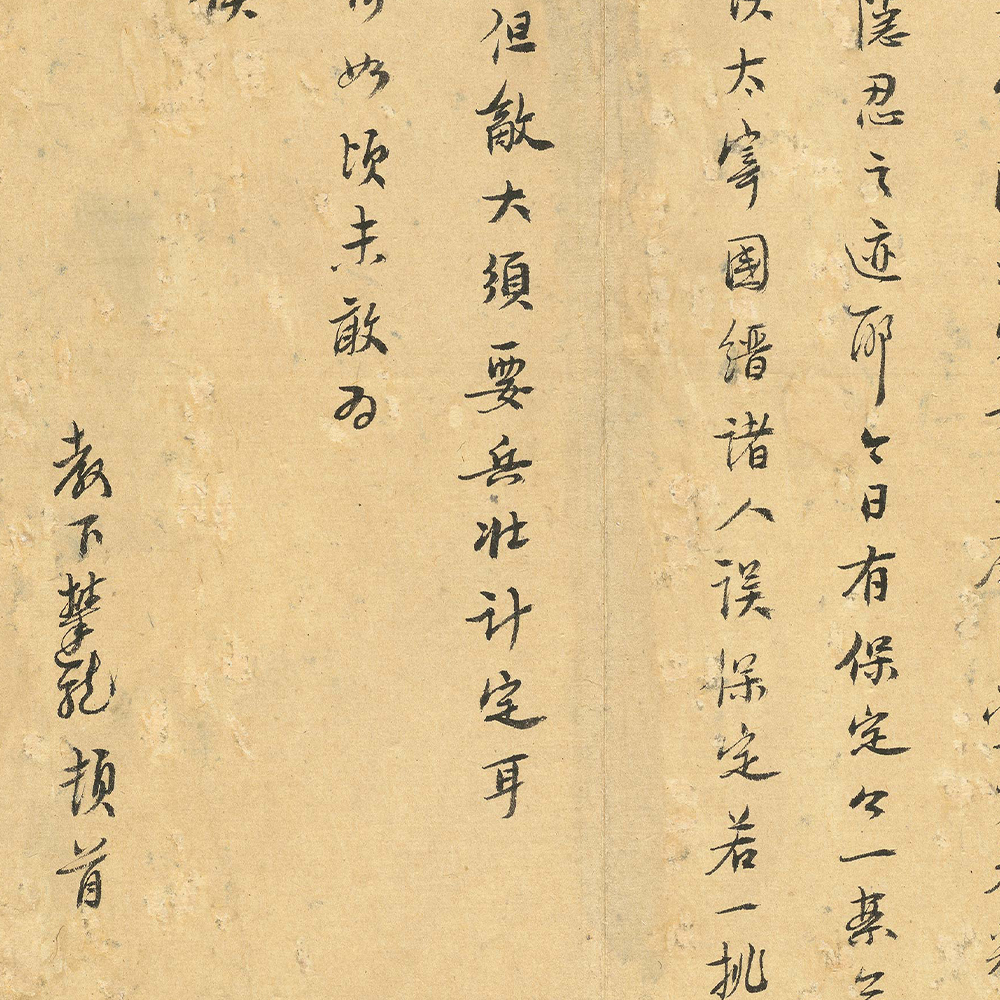 隱忍之迹耶今日有保定々一案
太宰國縉諸人誤保定若一挑
但敵大須要兵壯計定耳
如頃未敢為
教下攀龍頓首